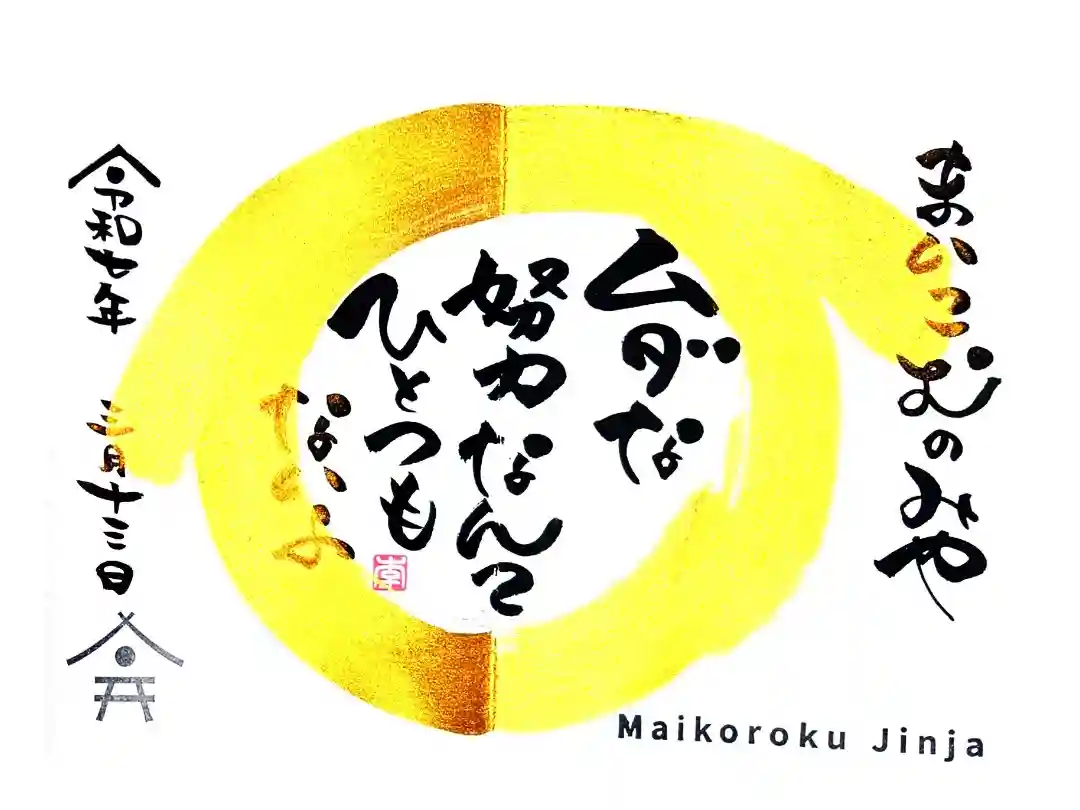 まいこむのみや
ムダな
努力なんて
ひとつも
ないよ
令和七年 三月十三日
Maikoroku Jinja